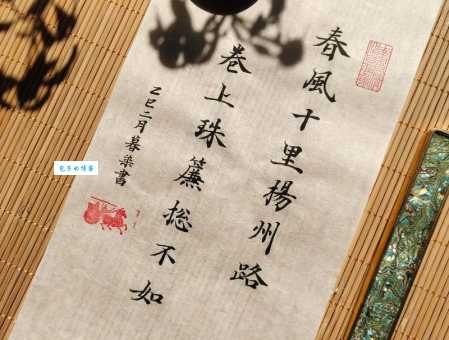 春風十里揚州路
卷上珠簾總不如
乙巳二月暮染書